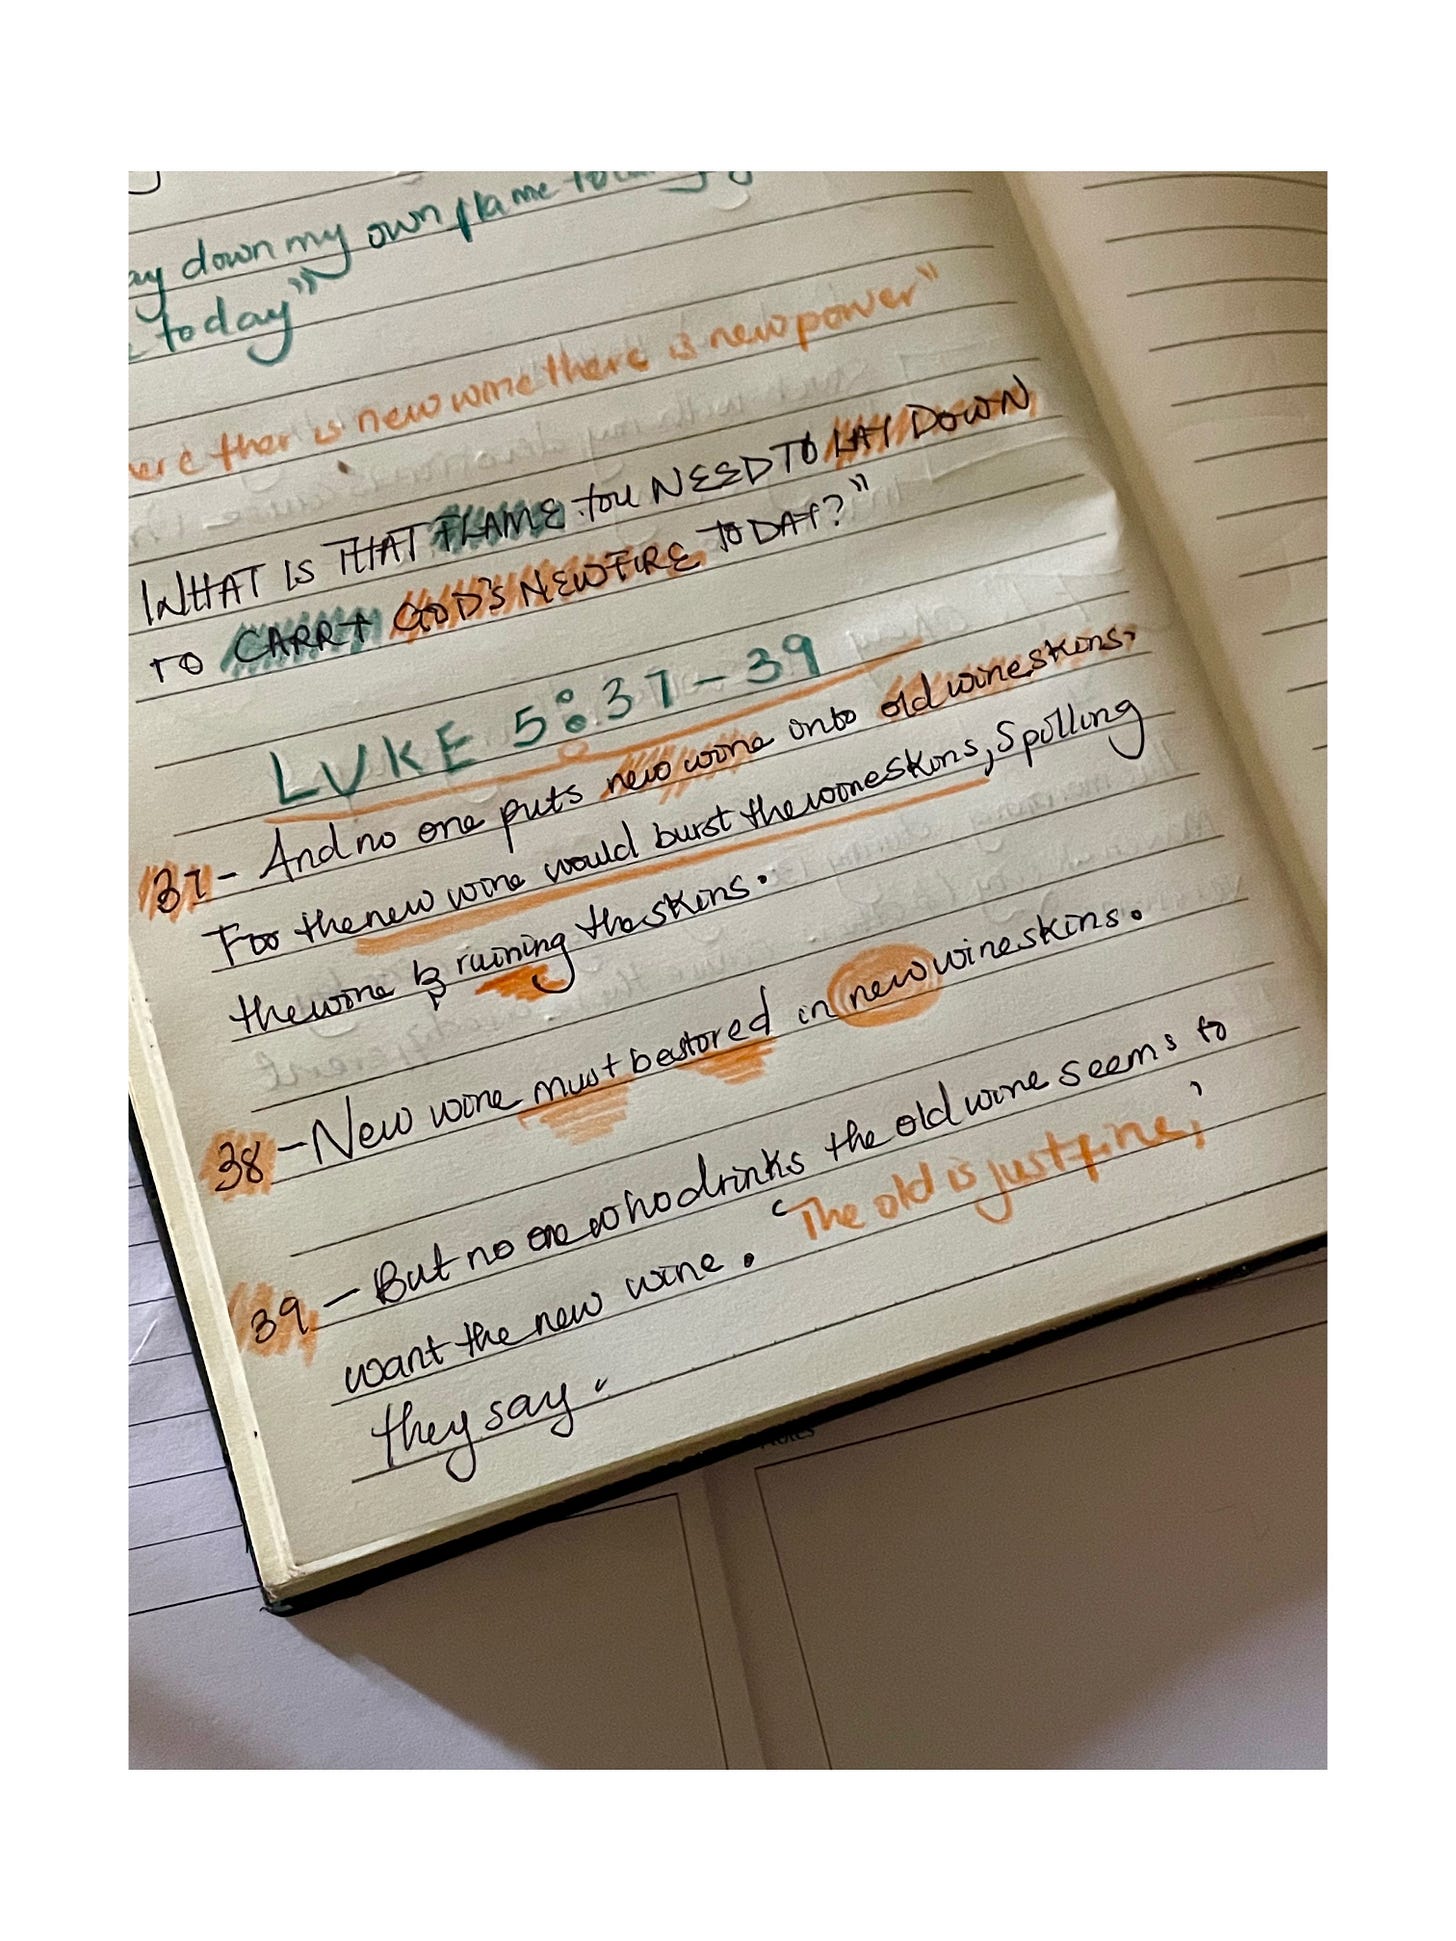 down my own flame
today"
ther is new wine there is new power"
WHAT IS THAT FLAME YOU NEED TO LAY DOWN
TO CARRY GOD'S NEW FIRE TODAY?"
LUKE 5:37-39
37- And no one puts new wine onto old wineskins.
For the new wine would burst the wineskins, spilling
the wine & ruining the skins.
38-New wine must be stored in new wineskins.
39-But no one who drinks the old wine seems to
want the new wine. 'The old is just fine,'
they say.
Notes